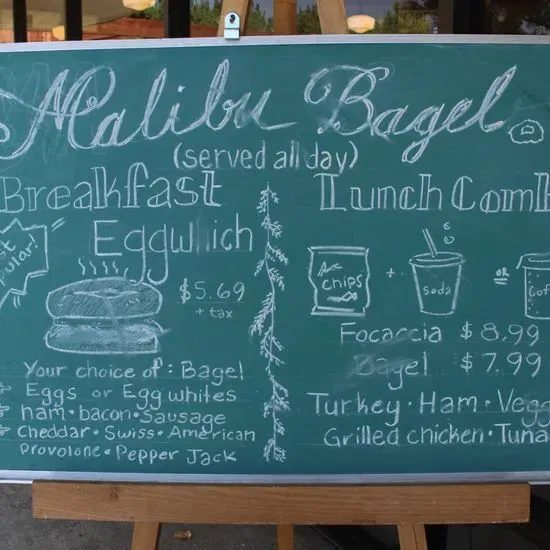 Malibu Bagel
(served all day)
Breakfast
Eggwhich
$5.69
+ tax
Your choice of: Bagel
Eggs or Egg whites
ham • bacon • Sausage
Cheddar • Swiss • American
Provolone • Pepper Jack
Lunch Comb
chips + soda = or Cof
Focaccia $8.99
Bagel $7.99
Turkey • Ham • Vegg
Grilled chicken • Tuna